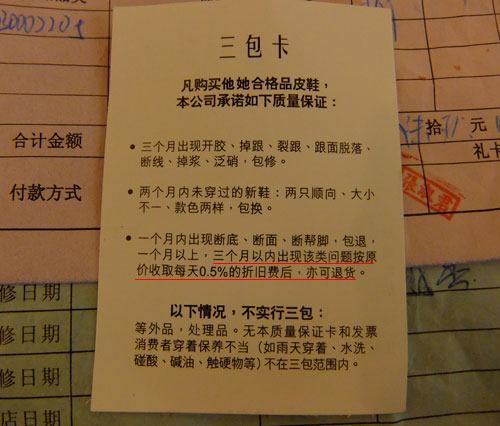 三包卡
凡购买他她合格品皮鞋，
本公司承诺如下质量保证：
● 三个月出现开胶、掉跟、裂跟、跟面脱落、
断线、掉浆、泛硝，包修。
● 两个月内未穿过的新鞋：两只顺向、大小
不一、款色两样，包换。
● 一个月内出现断底、断面、断帮脚，包退，
一个月以上，三个月以内出现该类问题按原
价收取每天0.5%的折旧费后，亦可退货。
以下情况，不实行三包：
等外品，处理品。无本质量保证卡和发票
消费者穿着保养不当（如雨天穿着、水洗、
碰酸、碱油、触硬物等）不在三包范围内。
合计金额
拾
元
礼卡
付款方式
修日期
修日期
修日期
店日期